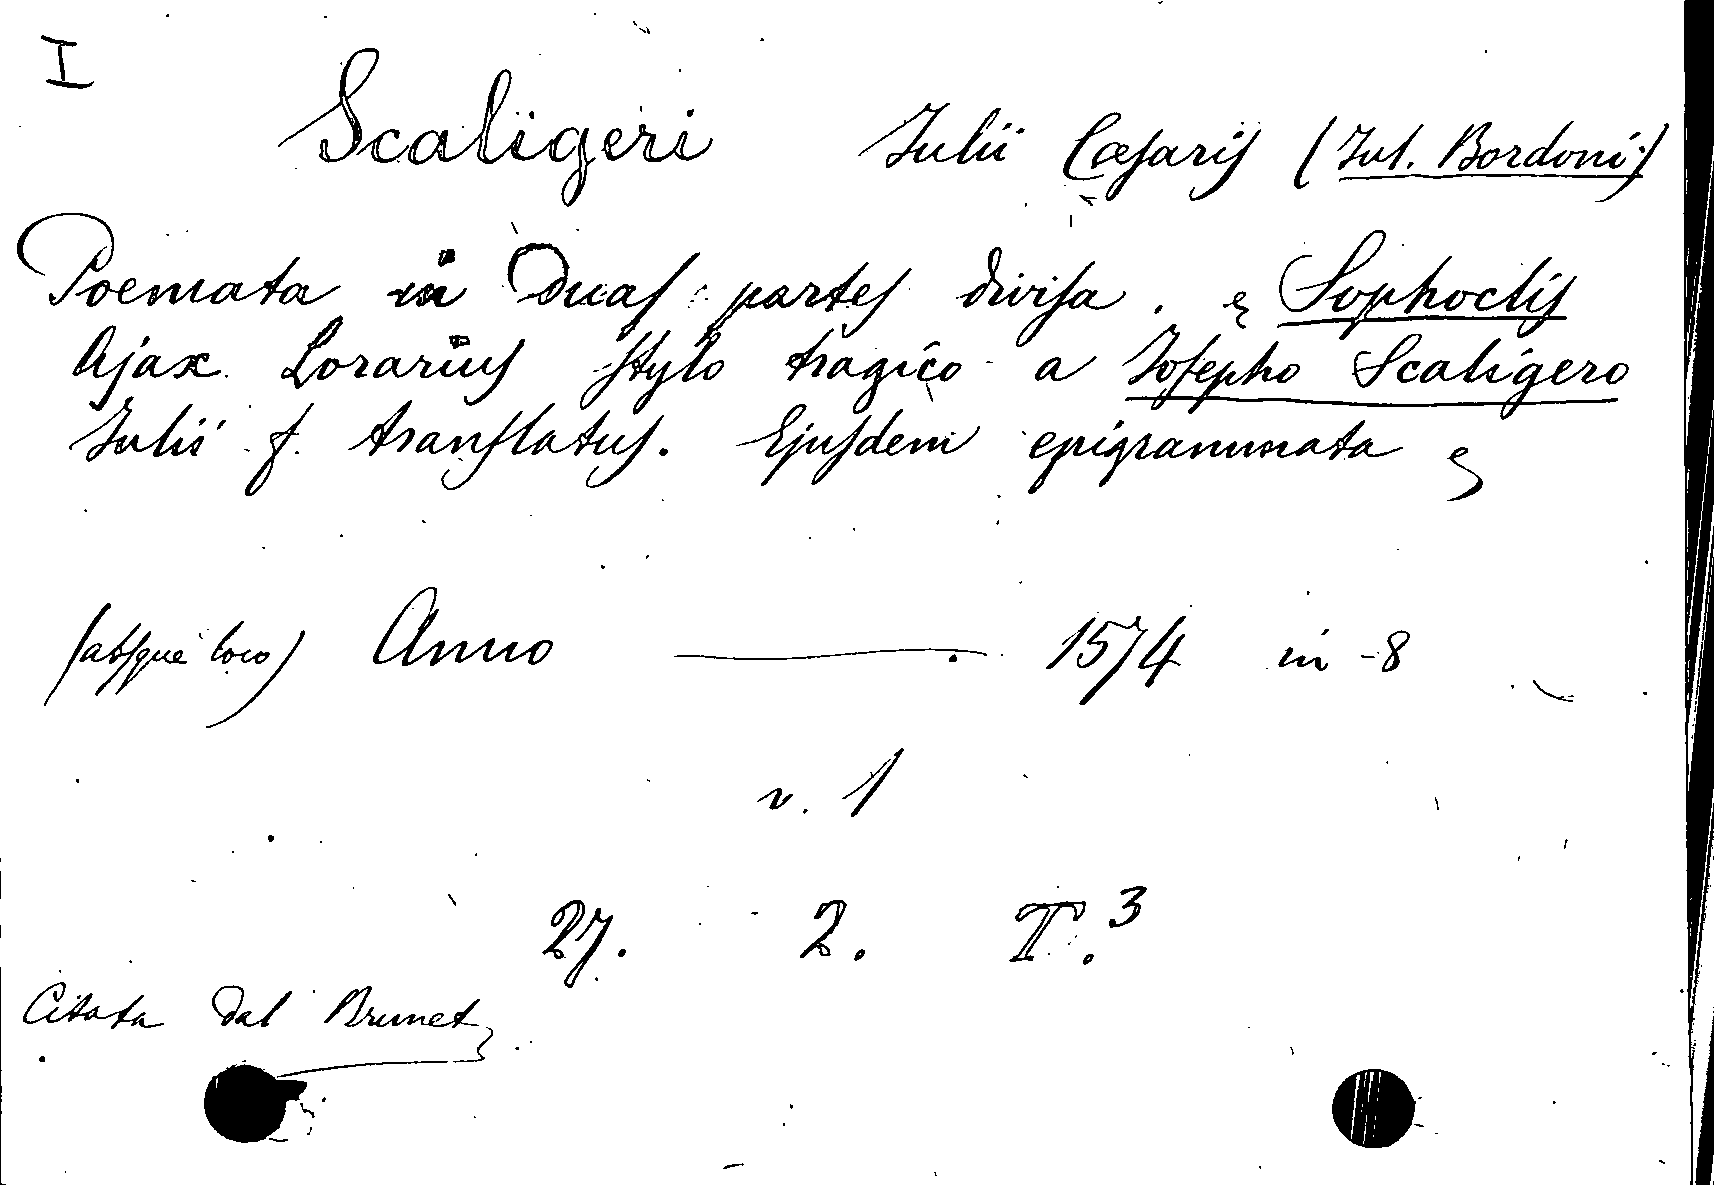 I
Scaligeri Iulii Cæsaris (Iul. Bordoni)
Poemata in Duas partes divisa. & Sophoclis
Ajax Lorarius stylo tragico a Josepho Scaligero
Iulii f. translatus. Ejusdem epigrammata &
(absque loco) Anno — 1574 in-8
v. 1
27. 2. T.3
Citata dal Brunet